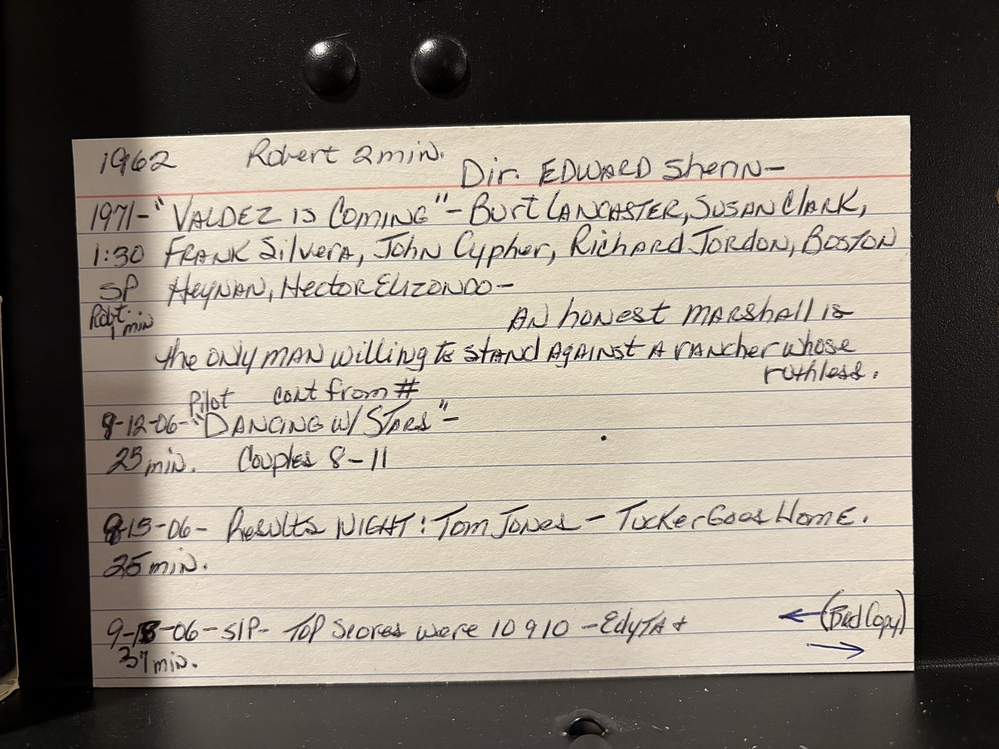 1962 Robert 2 min.
Dir. EDWARD Sherin-
1971-"VALDEZ is COMING"- Burt LANCASTER, SUSAN Clark,
1:30 FRANK Silvera, John Cypher, Richard Jordon, BOSTON
SP HeyNAN, Hector Elizondo-
Robt. 1 min
AN honest MARShall is
the only MAN willing to stand AgAinst A rancher whose
ruthless.
Pilot cont from #
9-12-06-"DANCING W/ STARS"-
25 min. Couples 8-11
9-13-06- Results NIGHT: Tom Jones - Tucker Goes Home.
25 min.
9-18-06-SLP- Top Scores were 10 9 10 - EdyTA +
37 min.
← (Bad Copy)
→